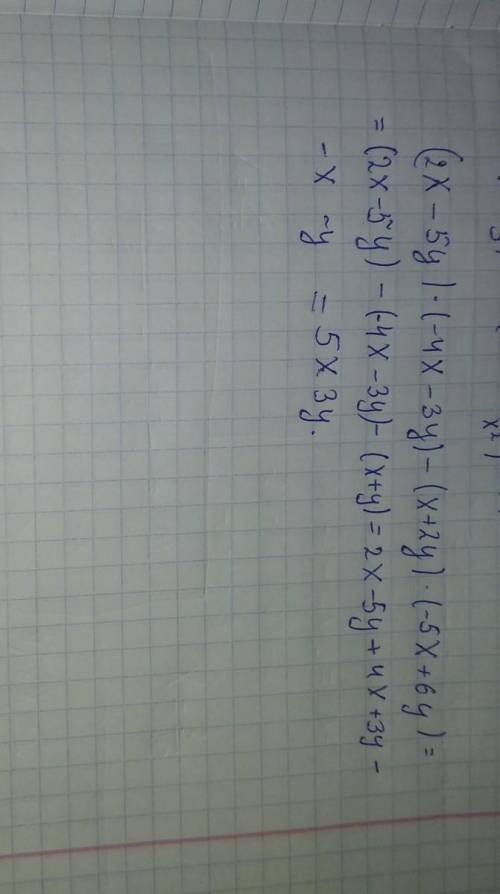 x²)
(2x - 5y) · (-4x - 3y) - (x+2y) · (-5x+6y) =
= (2x - 5y) - (-4x - 3y) - (x+y) = 2x - 5y + 4x + 3y -
- x - y = 5x 3y.